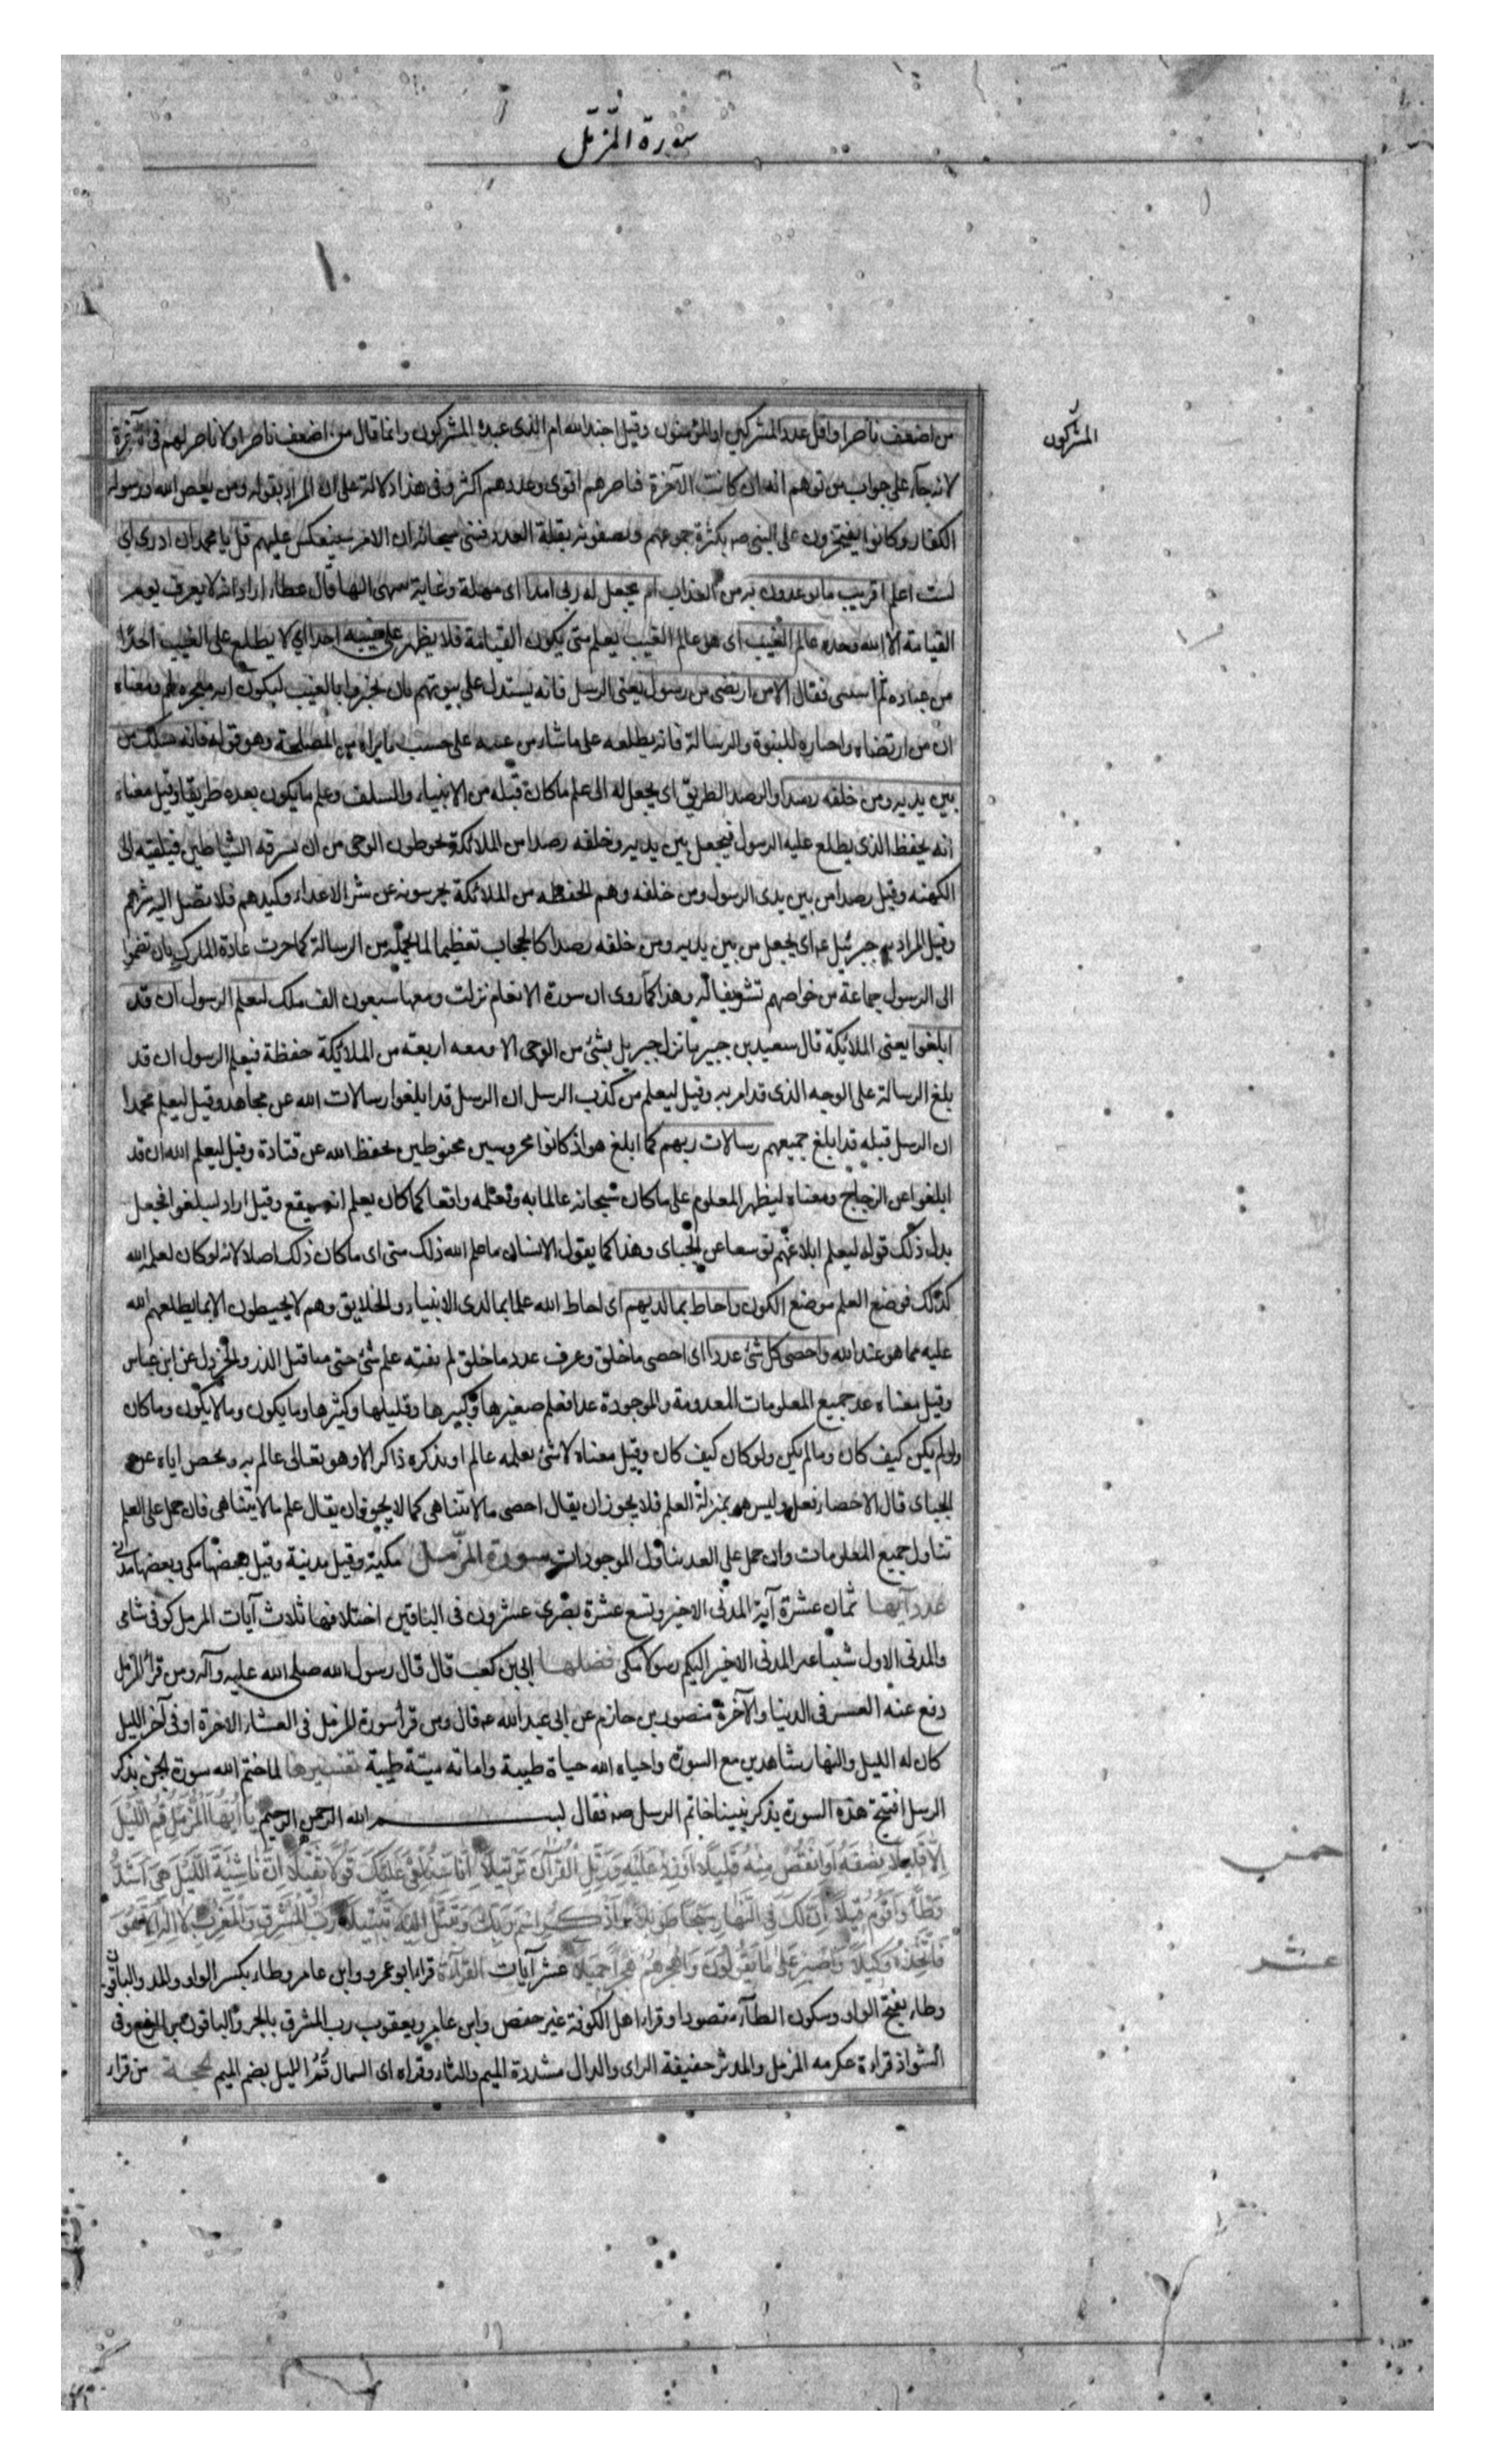 سورة المزمل
المشركون
من اضعف ناصرا واقل عددا المشركين او المؤمنون وقيل اجند الله ام الذى عبده المشركون وانما قال من اضعف ناصرا ولا ناصر لهم فى الآخرة
لانه جاء على جواب من توهم انه ان كانت الآخرة فناصرهم اقوى وعددهم اكثر وفى هذا دلالة على ان المراد بقوله ومن يعص الله ورسوله
الكفار وكانوا يفتخرون على النبى صه بكثرة جموعهم ويصفونه بقلة العدد فبين سبحانه ان الامر سينعكس عليهم قل يا محمد ان ادرى اى
لست اعلم اقريب ما توعدون به من العذاب ام يجعل له ربى امدا اى مهلة وغاية ينتهى اليها قال عطاء اراد انه لا يعرف يوم
القيامة الا الله وحده عالم الغيب اى هو عالم الغيب يعلم متى يكون القيامة فلا يظهر على غيبه احدا اي لا يطلع على الغيب احدا
من عباده ثم استثنى فقال الا من ارتضى من رسول يعنى الرسل فانه يستدل على نبوتهم بان يخبروا بالغيب ليكون آية معجزة لهم ومعناه
ان من ارتضاه واختاره للنبوة والرسالة فانه يطلعه على ما شاء من غيبه على حسب ما يراه من المصلحة وهو قوله فانه يسلك من
بين يديه ومن خلفه رصدا والرصد الطريق اى يجعل له الى علم ما كان قبله من الانبياء والسلف وعلم ما يكون بعده طريقا وقيل معناه
انه يحفظ الذى يطلع عليه الرسول فيجعل بين يديه وخلفه رصدا من الملائكة يحوطون الوحى من ان تسرقه الشياطين فيلقيه الى
الكهنه وقيل رصدا من بين يدى الرسول ومن خلفه وهم الحفظه من الملائكة يحرسونه عن شر الاعداء وكيدهم فلا يصل اليه شرهم
وقيل المراد به جبرئيل عه اى يجعل من بين يديه ومن خلفه رصدا كالحجاب تعظيما لما يحمله من الرسالة كما جرت عادة الملوك بان تضموا
الى الرسول جماعة من خواصهم تشريفا له وهذا كما روى ان سورة الانعام نزلت ومعها سبعون الف ملك ليعلم الرسول ان قد
ابلغوا يعنى الملائكة قال سعيد بن جبير ما نزل جبريل بشئ من الوحى الا ومعه اربعة من الملائكة حفظة فيعلم الرسول ان قد
بلغ الرسالة على الوجه الذى قد امر به وقيل ليعلم من كذب الرسل ان الرسل قد ابلغوا رسالات الله عن مجاهد وقيل ليعلم محمدا
ان الرسل قبله قد ابلغ جميعهم رسالات ربهم كما ابلغ هو اذ كانوا محروسين محفوظين بحفظ الله عن قتادة وقيل ليعلم الله ان قد
ابلغوا عن الزجاج ومعناه ليظهر المعلوم على ما كان سبحانه عالما به وتعلمه واقعا كما كان يعلم انه سيقع وقيل اراد ليبلغوا فجعل
بدل ذلك قوله ليعلم ابلاغهم توسعا عن الجباى وهذا كما يقول الانسان ما علم الله ذلك منى اى ما كان ذلك اصلا لانه لو كان لعلم الله
كذلك فوضع العلم موضع الكون واحاط بما لديهم اى احاط الله علما بما لدى الانبياء والخلايق وهم لا يحيطون الا بما يطلعهم الله
عليه مما هو عند الله واحصى كل شئ عددا اى احصى ما خلق وعرف عدد ما خلق لم يفته علم شئ حتى مثاقيل الذر والخردل عن ابن عباس
وقيل معناه عد جميع المعلومات المعدومة والموجودة عدا فعلم صغيرها وكبيرها وقليلها وكثيرها وما يكون وما لا يكون وما كان
ولو لم يكن كيف كان وما لم يكن ولو كان كيف كان وقيل معناه لا شئ يعلمه عالم او يذكره ذاكر الا وهو تعالى عالم به ومحص اياه عن
الجباى قال الاحصاء فعل وليس هو بمنزلة العلم فلا يجوز ان يقال احصى ما لا يتناهى كما لا يجوز ان يقال علم ما لا يتناهى فان حمل على العلم
تناول جميع المعلومات وان حمل على العد يتناول الموجودات سورة المزمل مكية وقيل مدنية وقيل بعضها مكى وبعضها مدنى
عدد آيها ثمان عشرة آية المدنى الاخير وتسع عشرة بصرى عشرون فى الباقين اختلافها ثلاث آيات المزمل كوفى شامى
والمدنى الاول شيبا غير المدنى الاخير اليكم رسولا مكى فضلها ابى بن كعب قال قال رسول الله صلى الله عليه وآله ومن قرأ المزمل
دفع عنه العسر فى الدنيا والآخرة منصور بن حازم عن ابى عبد الله عه قال ومن قرأ سورة المزمل فى العشاء الاخرة او فى آخر الليل
كان له الليل والنهار شاهدين مع السورة واحياه الله حياة طيبة واماته ميتة طيبة تفسيرها لما ختم الله سورة الجن بذكر
الرسل افتتح هذه السورة بذكر نبينا خاتم الرسل صه فقال بسم الله الرحمن الرحيم يَا اَيُّهَا الْمُزَّمِّلُ قُمِ اللَّيْلَ
اِلَّا قَلِيلًا نِصْفَهُ اَوِ انْقُصْ مِنْهُ قَلِيلًا اَوْ زِدْ عَلَيْهِ وَرَتِّلِ الْقُرْآنَ تَرْتِيلًا اِنَّا سَنُلْقِى عَلَيْكَ قَوْلًا ثَقِيلًا اِنَّ نَاشِئَةَ اللَّيْلِ هِىَ اَشَدُّ
وَطْأً وَاَقْوَمُ قِيلًا اِنَّ لَكَ فِى النَّهَارِ سَبْحًا طَوِيلًا وَاذْكُرِ اسْمَ رَبِّكَ وَتَبَتَّلْ اِلَيْهِ تَبْتِيلًا رَبُّ الْمَشْرِقِ وَالْمَغْرِبِ لَا اِلَهَ اِلَّا هُوَ
فَاتَّخِذْهُ وَكِيلًا وَاصْبِرْ عَلَى مَا يَقُولُونَ وَاهْجُرْهُمْ هَجْرًا جَمِيلًا عشر آيات القراءة قراء ابو عمرو وابن عامر وطاء بكسر الواو والمد والباقون
وطاء بفتح الواو وسكون الطآء مقصورا وقراء اهل الكوفة غير حفص وابن عامر ويعقوب رب المشرق بالجر والباقون بالرفع وفى
الشواذ قراءة عكرمه المزمل والمدثر خفيفة الزاى والدال مشددة الميم والثاء وقراه ابى السمال قُمُ الليل بضم الميم الحجة من قراء
خمس
عشر